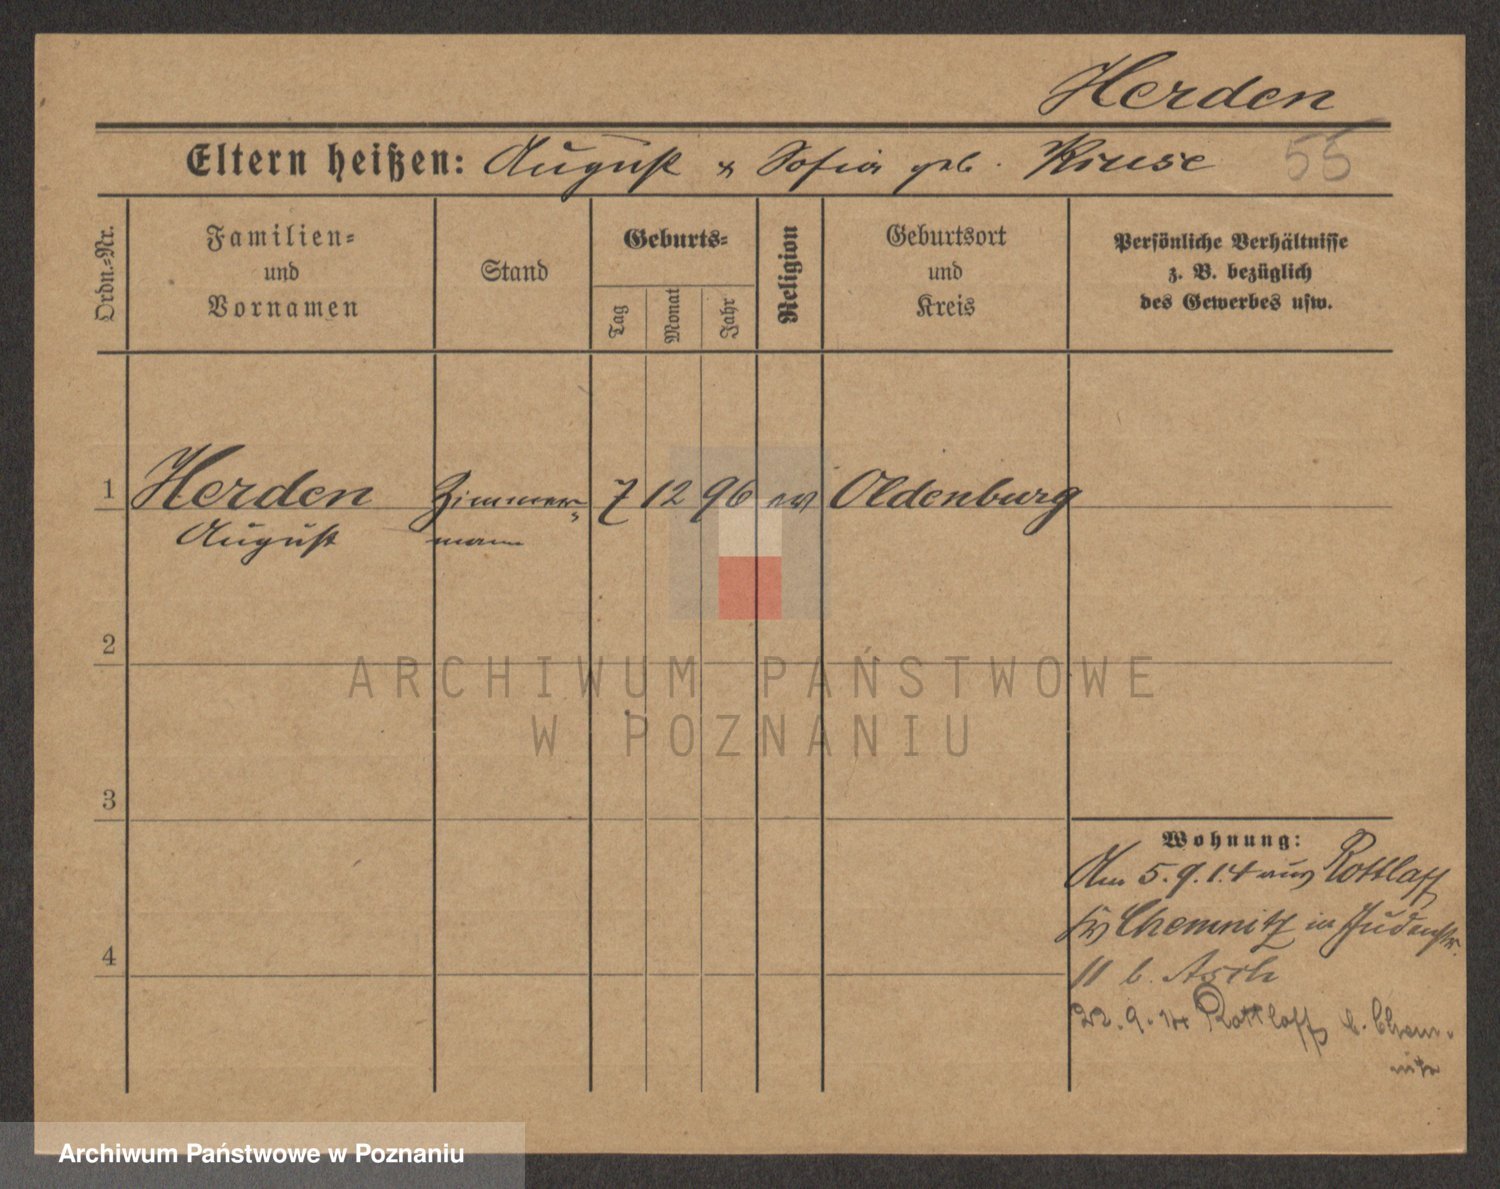 Herden
Eltern heißen: August & Sofia geb. Kruse 55
Ordn.-Nr.
Familien-
und
Vornamen
Stand
Geburts-
Tag
Monat
Jahr
Religion
Geburtsort
und
Kreis
Persönliche Verhältnisse
z. B. bezüglich
des Gewerbes usw.
1 Herden Zimmer- 7 12 96 ev Oldenburg
August mann
2
ARCHIWUM PAŃSTWOWE
W POZNANIU
3
Wohnung:
Am 5.9.14 aus Rottlaff
Chemnitz in Judenstr.
4
11 b. Asch
22.9.14 Rottloff b. Chem-
nitz
Archiwum Państwowe w Poznaniu